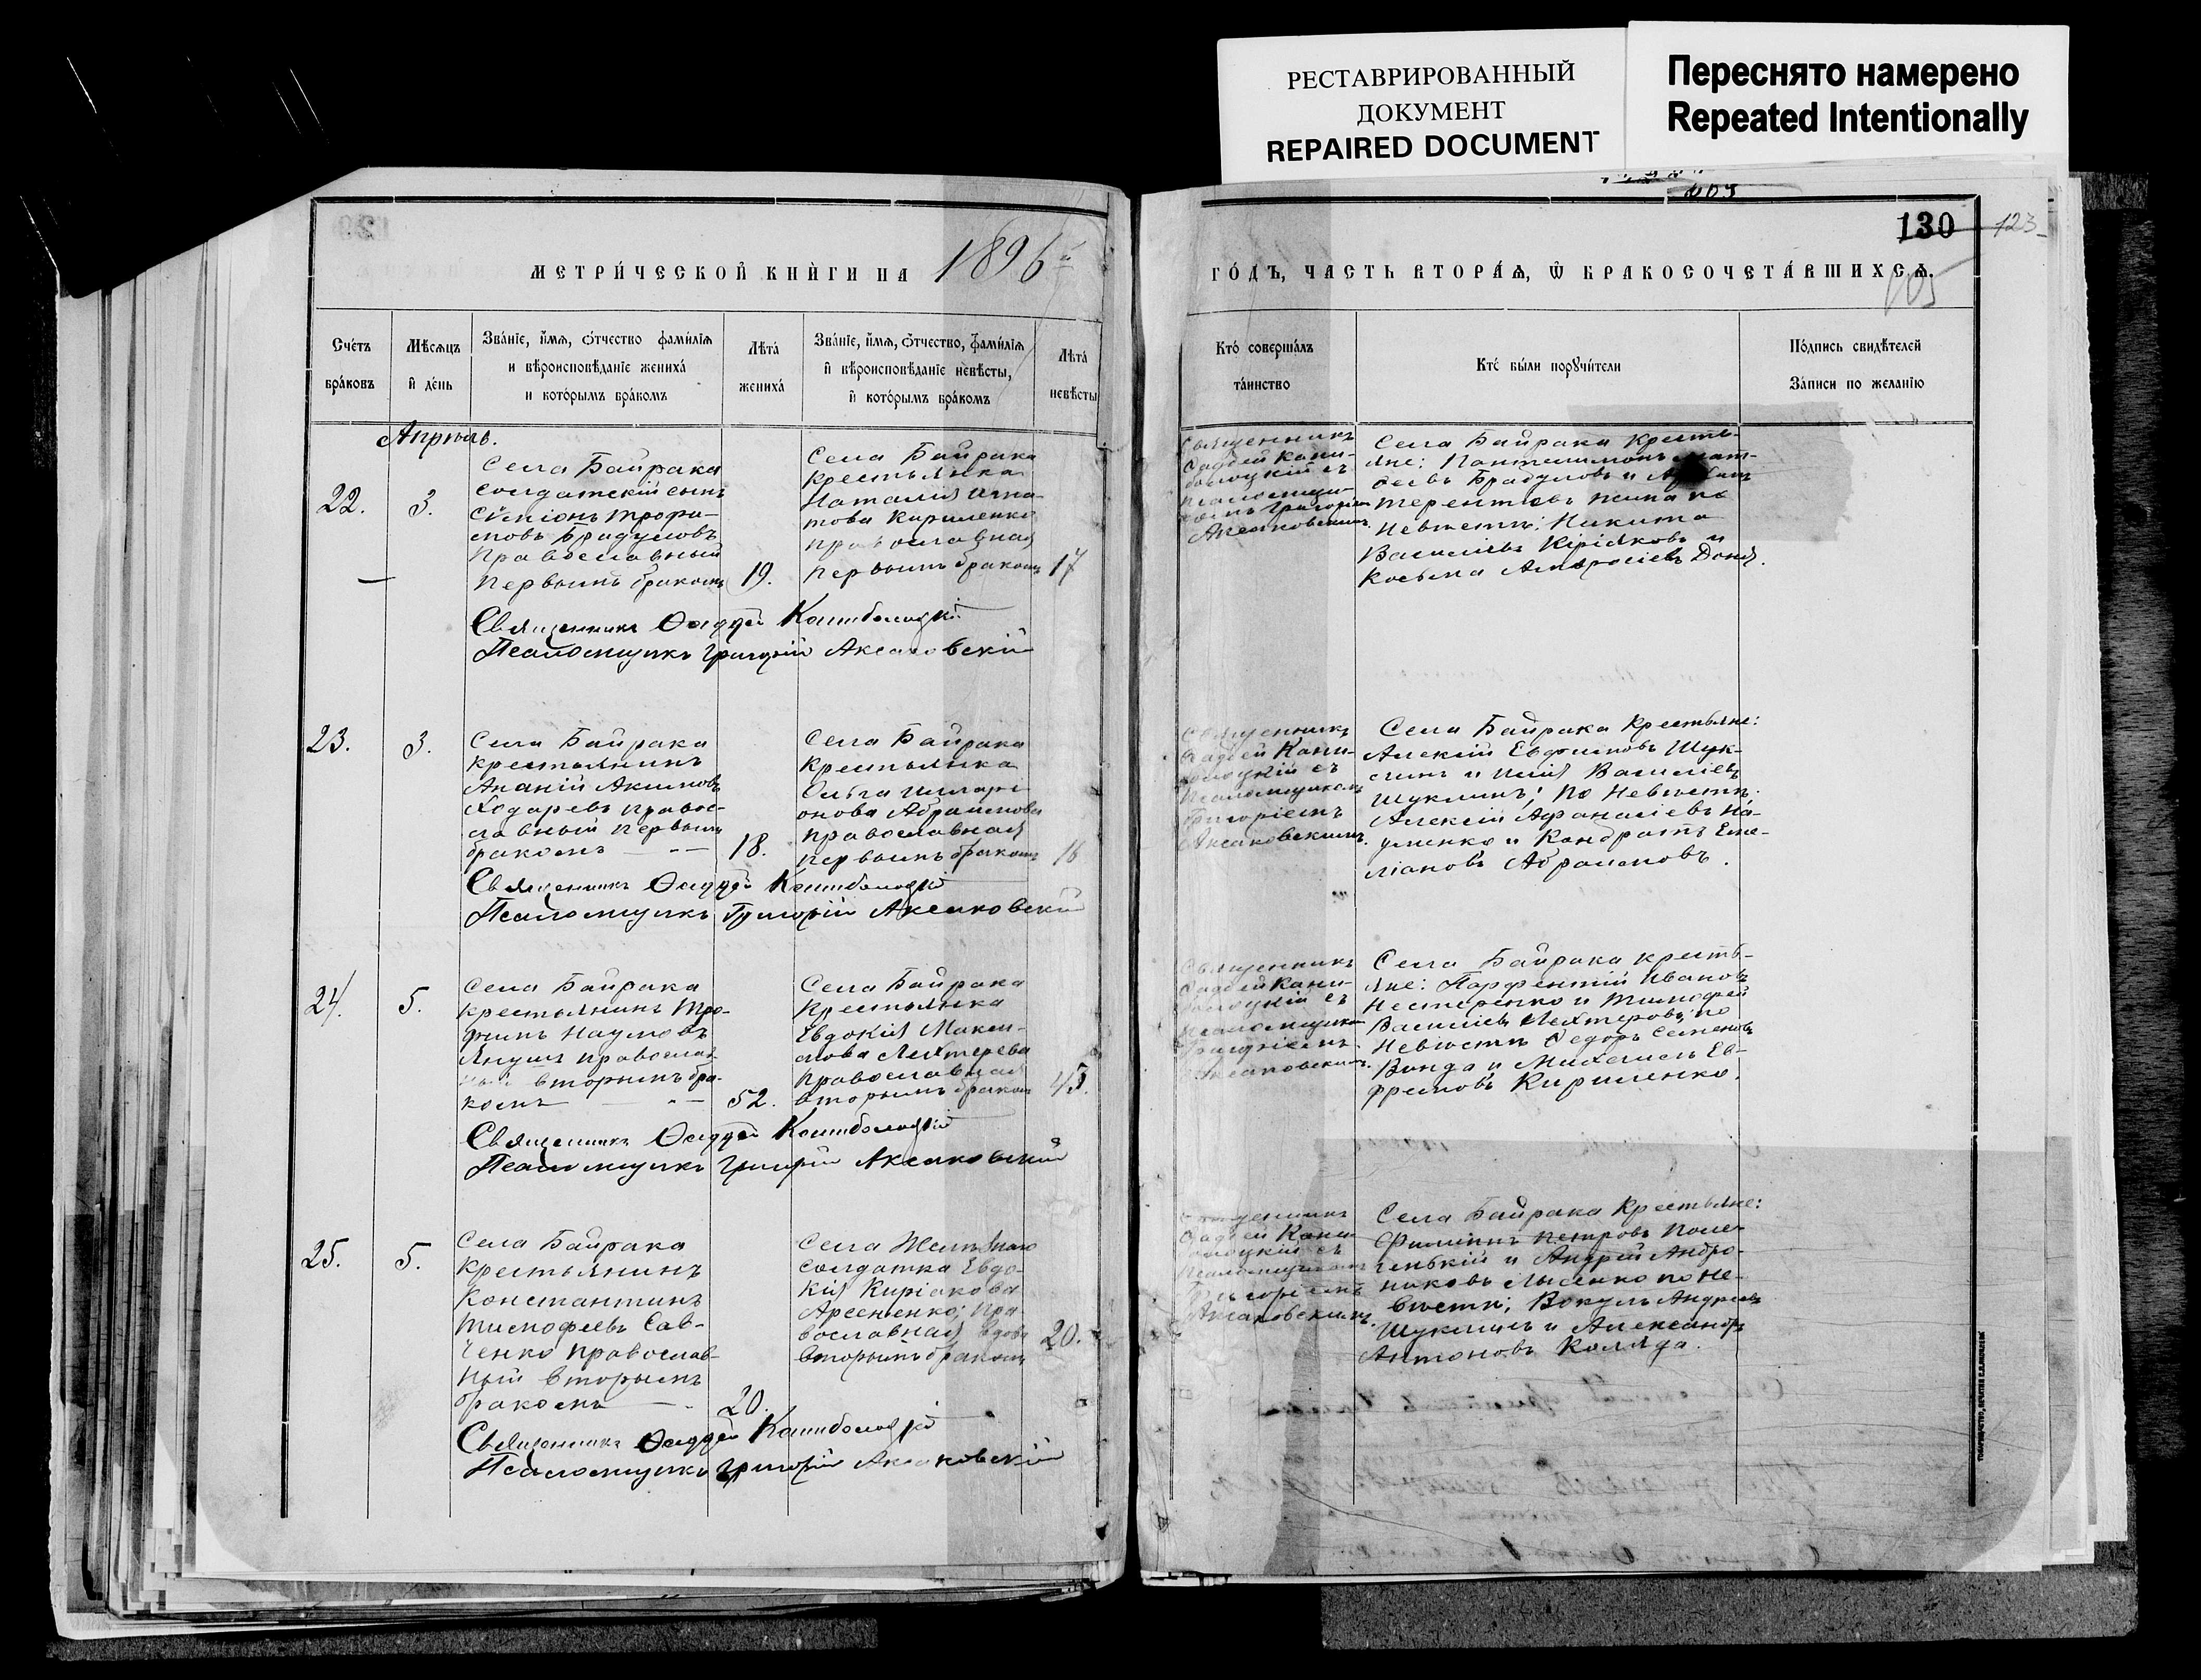 РЕСТАВРИРОВАННЫЙ
ДОКУМЕНТ
REPAIRED DOCUMENT
Переснято намерено
Repeated Intentionally
130
123
105
МЕТРИ́ЧЕСКОЙ КНИ́ГИ НА 1896
ГО́ДЪ, ЧАСТЬ ВТОРА́Ѧ, Ѽ БРАКОСОЧЕТА́ВШИХСѦ.
Сче́тъ
бра́ковъ
Мѣ́сяцъ
и҆ де́нь
Зва́нїе, и҆́мѧ, ѻ҆́тчество фами́лїѧ
и вѣроисповѣ́данїе жениха́
и кото́рымъ бра́комъ
Лѣта́
жениха́
Зва́нїе, и҆́мѧ, ѻ҆́тчество, фами́лїѧ
и҆ вѣроисповѣ́данїе невѣ́сты,
и҆ кото́рымъ бра́комъ
Лѣта́
невѣ́сты
Кто́ соверша́лъ
та́инство
Кто́ бы́ли порꙋчи́тели
По́дпись свидѣ́телей
За́писи по жела́нїю
Апрѣль.
22.
3.
Села Байрака
солдатскій сынъ
Сѵмеонъ Трофи-
мовъ Брадуловъ
Православный
первымъ бракомъ
19.
Села Байрака
крестьянка
Наталія Игна-
това Кириленко
православная
первымъ бракомъ
17
Священникъ
Ѳаддей Капи-
болоцкій съ
псаломщи-
комъ Григоріемъ
Аксаковскимъ.
Села Байрака кресть-
яне: Пантелимонъ Мат-
ѳеевъ Брадуловъ и
Терентіевъ по
невѣсте: Никита
Василіевъ Киріяковъ и
Косьма Амвросіевъ Доня.
Священникъ Ѳаддей Капиболоцкій
Псаломщикъ Григорій Аксаковскій
23.
3.
Села Байрака
крестьянинъ
Ананій Акимовъ
Ходаревъ правос-
лавный первымъ
бракомъ — " —
18.
Села Байрака
крестьянка
Ольга Илларі-
онова Абрамова
православная
первымъ бракомъ
16
Священникъ
Ѳаддей Капи-
болоцкій съ
псаломщикомъ
Григоріемъ
Аксаковскимъ.
Села Байрака крестьяне:
Алексій Евфимовъ Шук-
линъ и Илія Василіевъ
Шуклинъ; по невѣсте:
Алексій Афанасіевъ На-
уменко и Кондратъ Еме-
ліановъ Абрамовъ.
Священникъ Ѳаддей Капиболоцкій
Псаломщикъ Григорій Аксаковскій
24.
5.
Села Байрака
крестьянинъ Тро-
фимъ Наумовъ
Янушъ православ-
ный вторымъ бра-
комъ — " —
52.
Села Байрака
крестьянка
Евдокія Макси-
мова Лехтерева
православная
вторымъ бракомъ
43.
Священникъ
Ѳаддей Капи-
болоцкій съ
псаломщикомъ
Григоріемъ
Аксаковскимъ.
Села Байрака кресть-
яне: Парфентій Ивановъ
Нестеренко и Тимофей
Василіевъ Лехтеровъ; по
невѣсте Ѳедоръ Семеновъ
Винда и Михаилъ Ев-
фремовъ Кириленко.
Священникъ Ѳаддей Капиболоцкій
Псаломщикъ Григорій Аксаковскій
25.
5.
Села Байрака
крестьянинъ
Константинъ
Тимофеевъ Сав-
ченко православ-
ный вторымъ
бракомъ — .
20.
Села
солдатка Евдо-
кія Киріакова
Арсененко; пра-
вославная, вдова
вторымъ бракомъ
20.
Священникъ
Ѳаддей Капи-
болоцкій съ
псаломщикомъ
Григоріемъ
Аксаковскимъ.
Села Байрака крестьяне:
Филиппъ Петровъ Поле-
генькій и Андрей Андро-
никовъ Лысенко по не-
вѣсте; Вокулъ Андреевъ
Шуклинъ и Александръ
Антоновъ Коляда.
Священникъ Ѳаддей Капиболоцкій
Псаломщикъ Григорій Аксаковскій